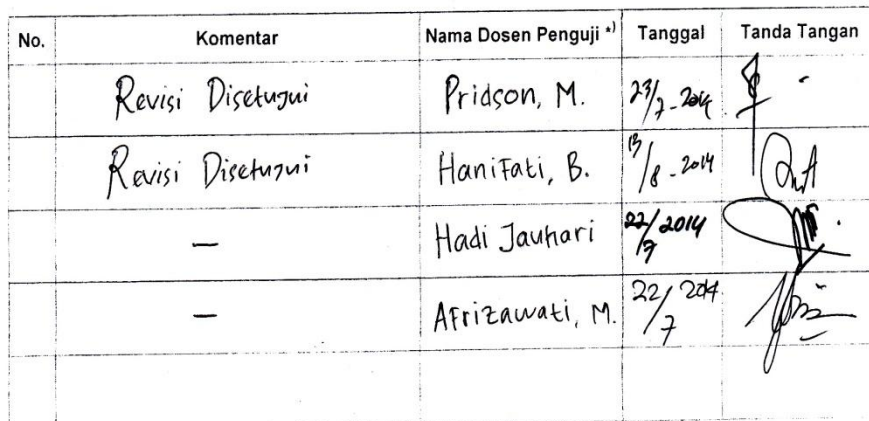 No. Komentar Nama Dosen Penguji *) Tanggal Tanda Tangan
Revisi Disetujui Pridson, M. 23/7-2014
Revisi Disetujui Hanifati, B. 13/8-2014
— Hadi Jauhari 22/7 2014
— Afrizawati, M. 22/7 2014